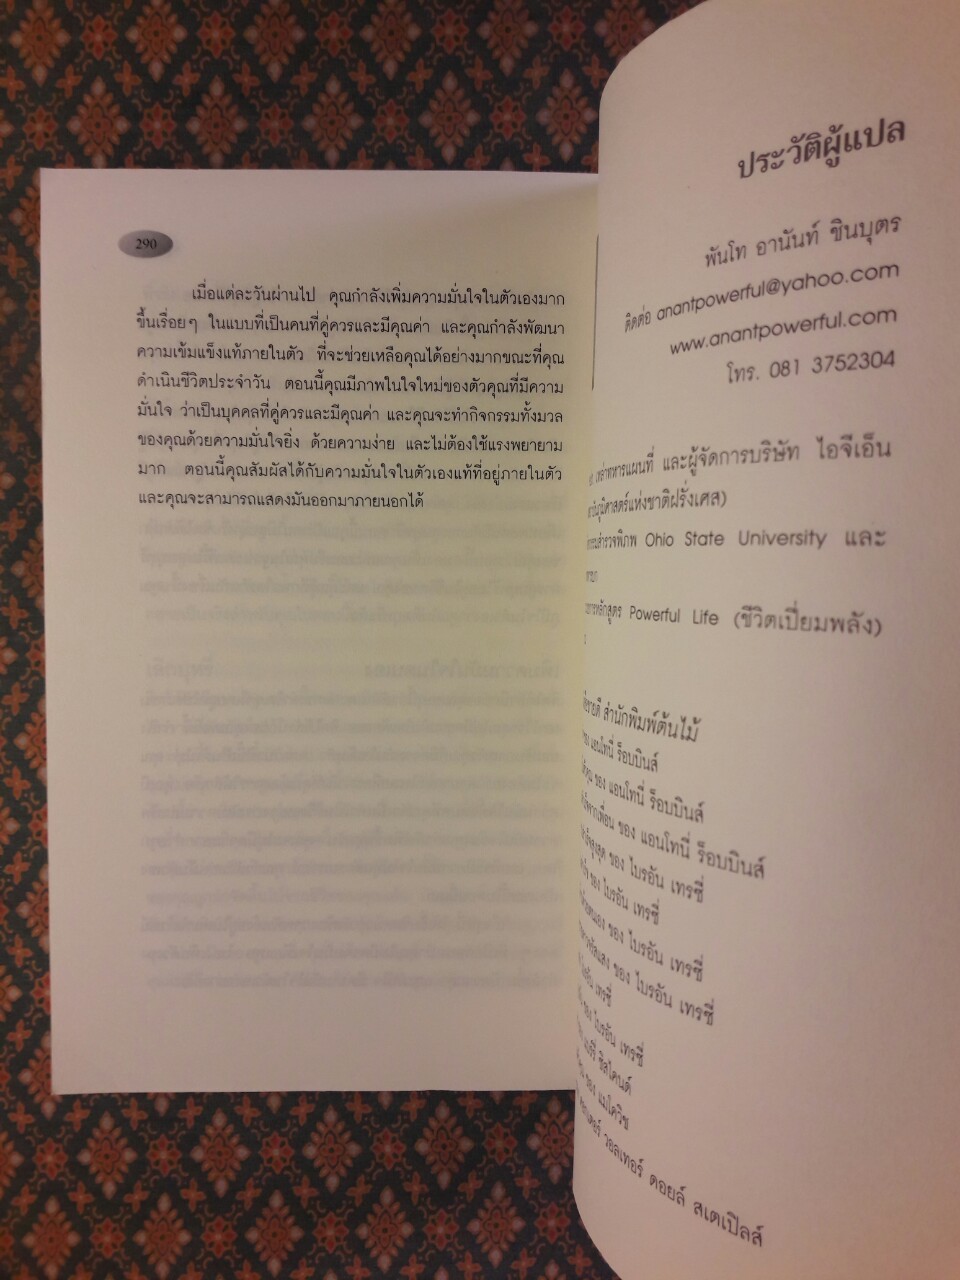 290
เมื่อแต่ละวันผ่านไป คุณกำลังเพิ่มความมั่นใจในตัวเองมาก
ขึ้นเรื่อยๆ ในแบบที่เป็นคนที่คู่ควรและมีคุณค่า และคุณกำลังพัฒนา
ความเข้มแข็งแท้ภายในตัว ที่จะช่วยเหลือคุณได้อย่างมากขณะที่คุณ
ดำเนินชีวิตประจำวัน ตอนนี้คุณมีภาพในใจใหม่ของตัวคุณที่มีความ
มั่นใจ ว่าเป็นบุคคลที่คู่ควรและมีคุณค่า และคุณจะทำกิจกรรมทั้งมวล
ของคุณด้วยความมั่นใจยิ่ง ด้วยความง่าย และไม่ต้องใช้แรงพยายาม
มาก ตอนนี้คุณสัมผัสได้กับความมั่นใจในตัวเองแท้ที่อยู่ภายในตัว
และคุณจะสามารถแสดงมันออกมาภายนอกได้
ประวัติผู้แปล
พันโท อานันท์ ชินบุตร
ติดต่อ anantpowerful@yahoo.com
www.anantpowerful.com
โทร. 081 3752304
เหล่าทหารแผนที่ และผู้จัดการบริษัท ไอจีเอ็น
ภูมิศาสตร์แห่งชาติฝรั่งเศส)
สำรวจพิภพ Ohio State University และ
หลักสูตร Powerful Life (ชีวิตเปี่ยมพลัง)
ขายดี สำนักพิมพ์ต้นไม้
ของ แอนโทนี่ ร็อบบินส์
ของ แอนโทนี่ ร็อบบินส์
ของ แอนโทนี่ ร็อบบินส์
ของ ไบรอัน เทรซี่
ของ ไบรอัน เทรซี่
ของ ไบรอัน เทรซี่
ของ ไบรอัน เทรซี่
เทรซี่
ของ ไบรอัน เทรซี่
ของ แมโดวิช
วอลเทอร์ ดอยล์ สเตเปิลส์